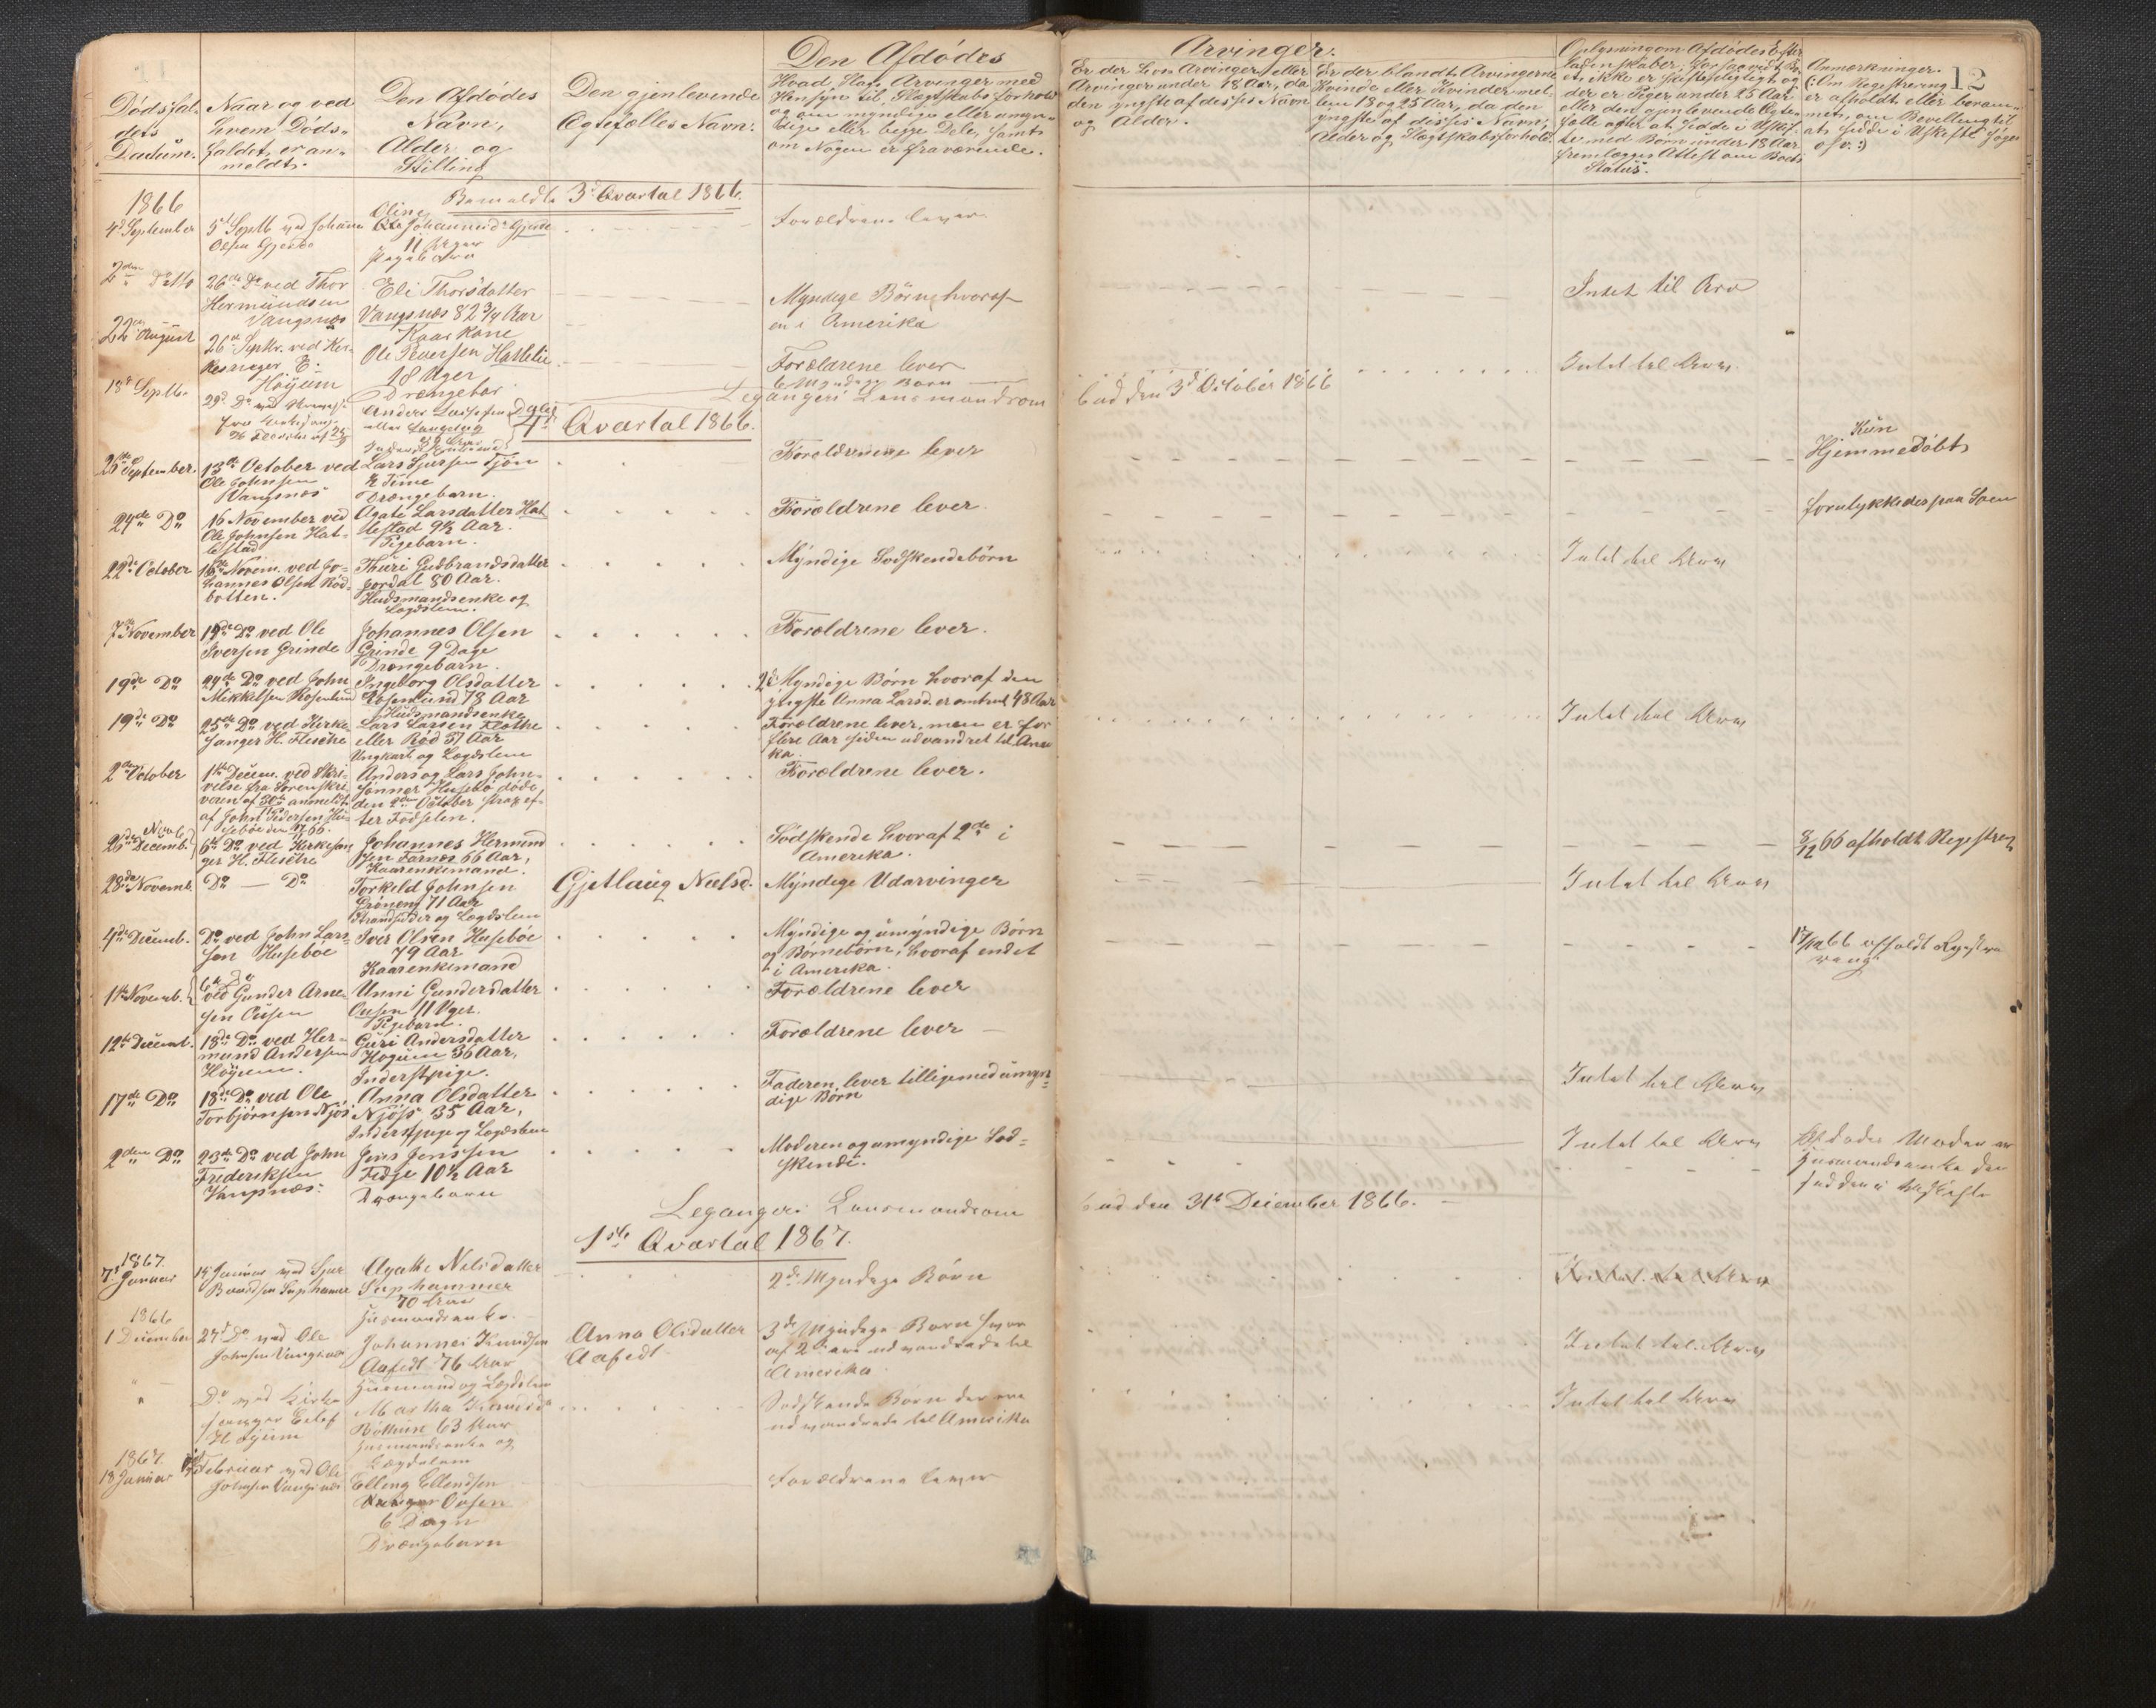 Den Afdødes
Arvinger.
12
Dødsfal-
dets
Datum.
Naar og ved
hvem Døds-
faldet er an-
meldt.
Den Afdødes
Navn,
Alder og
Stilling
Den gjenlevende
Ægtefælles Navn.
Hvad Slags Arvinger med
Hensyn til Slægtskabsforhold
og om myndige eller umyn-
dige eller begge Dele, samt
om Nogen er fraværende.
Er der blandt Arvingerne
Kvinde eller Kvinder mel-
lem 18 og 25 Aar, da den
yngste af disses Navn,
Alder og Slægtskabsforhold.
Arvinger under 18 Aar, da
den yngste af disses Navn
og Alder.
der er Piger under 25 Aar
eller den gjenlevende Ægte-
fælle agter at sidde i Uskif-
te med Børn under 18 Aar
fremlægges Attest om Boets
Status.
Anmærkninger.
(: Om Registrering
er afholdt eller beram-
met, om Bevilling til
at sidde i Uskiftet søges
o. s. v. :)
3d Qvartal 1866.
1866
4d September
5d Septb ved Johannes
Olsen Gjerde
Oline
11 Uger
Forældrene lever
2den Ditto
26de Do ved Thor
Hermundsen
Vangsnæs
Eli Thorsdatter
Vangsnæs 82 3/4 Aar
Kaarkone
Myndige Børn, hvoraf
en i Amerika
Intet til Arv
22 August
26d Septbr. ved Kir-
kesanger E.
Høyum
Ole Pedersen Hatlelie
18 Uger
Drængebar
Forældrene lever
Intet til Arv
18d Septb.
29d Do ved
6 Myndige Børn
Leganger Lensmandsom
bud den 3d October 1866
4d Qvartal 1866.
26de September.
13de October ved
Ole Johnsen
Vangsnæs
Lars Sjursen Tjøn
½ Time
Drængebarn.
Forældrenene lever
Kun
Hjemmedøbt
24de Do
16 November ved
Ole Johnsen Hat-
lestad
Agate Larsdatter Hat
lestad 9½ Aar.
Pigebarn.
Forældrene lever.
forulykkedes paa Søen
22de October
16de Novem. ved Jo-
hannes Olsen Rød-
botten.
Thuri Gudbrandsdatter
Jordal 80 Aar.
Husmandsenke og
Lægdslem.
Myndige Sødskendebørn
Intet til Arv
7de November
19de Do ved Ole
Iversen Grinde
Johannes Olsen
Grinde 9 Dage
Drængebarn.
Forældrene lever.
19de Do
24de Do ved John
Mikkelsen Rosenlund
Ingeborg Olsdatter
Rosenlund 78 Aar
Husmandsenke
2de Myndige Børn hvoraf den
yngste Anna Larsd. er omtrent 48 Aar
19de Do
25de Do ved Kirke-
sanger H. Flesche
Lars Larsen Flathe
eller Rød 37 Aar
Ungkarl og Lægdslem
Forældrene lever, men er for
flere Aar siden udvandret til Ame
ka.
Intet til Arv
2den October
1ste Decem. ved Skri-
velse fra Sorenskri-
veren af 30te anmeldt
af John Pedersen Hu-
sebøe den 17/11 66.
Anders og Lars John-
sønner Husebø døde,
den 2den October strax ef-
ter Fødselen.
Forældrene lever.
Novb
26de Decemb.
6te Do ved Kirkesan
ger H. Flesche
Johannes Hermund
sen Farnæs 66 Aar,
Kaarenkemand.
Sødskende hvoraf 2de i
Amerika.
8/12 66 afholdt Registrer.
28de Novemb.
Do — Do
Torkeld Johnsen
Grønen 71 Aar
Strandsidder og Lægdslem
Gjetlaug Nielsd.
Myndige Udarvinger
Intet til Arv
4de Decemb.
Do ved John Lars-
sen Husebøe
Iver Olsen Husebøe
79 Aar
Kaarenkemand
Myndige og umyndige Børn
og Børnebørn, hvoraf endel
i Amerika.
17/12 66 afholdt Registre
ring
1ste Novemb.
6te Do
ved Gunder Arne-
sen Ousen
Unni Gundersdatter
Ousen 11 Uger.
Pigebarn.
Forældrene lever
12te Decemb.
18de Do ved Her-
mund Andersen
Høyum.
Guri Andersdatter
Høgum 36 Aar,
Inderstpige.
Forældrene lever
17de Do
18de Do ved Ole
Torbjørnsen Njøs
Anna Olsdatter
Njøss 35 Aar,
Inderstpige og Lægdslem
Faderen lever tilligemed umyn-
dige Børn
Intet til Arv
2den Do
23de Do ved John
Frederiksen
Vangsnæs.
Jens Jenssen
Fedse 10½ Aar
Drængebarn
Moderen og umyndige Sød-
skende.
Intet til Arv
Afdødes Moder er
Husmandsenke der
sidder i Uskifte
Leganger Lensmandsom
bud den 31te December 1866.
1ste Qvartal 1867.
1867.
7d Januar
15d Januar ved Sjur
Baardsen Suphamer
Agathe Nilsdatter
Suphammer
70 Aar
Husmandsenke.
2de Myndige Børn
Intet til Arv
1866
1 December
27d Do ved Ole
Johnsen Vangsnæs
Johannes Knudsen
Aafedt 76 Aar
Husmand og Lægdslem
Anna Olsdatter
Aafedt
3de Myndige Børn hvor
af 2de ere udvandrede til
Amerika
Intet til Arv
Do ved Kirke
sanger Eelef
Høyum
Martha
63 Aar
Husmandsenke og
Lægdslem
Sødskende Børn der ere
udvandrede til Amerika
Intet til Arv
1867.
18 Januar
Februar ved Ole
Johnsen Vangsnæs
Elling Ellendsen
Ousen
6 Dagn
Drængebarn
Forældrene lever